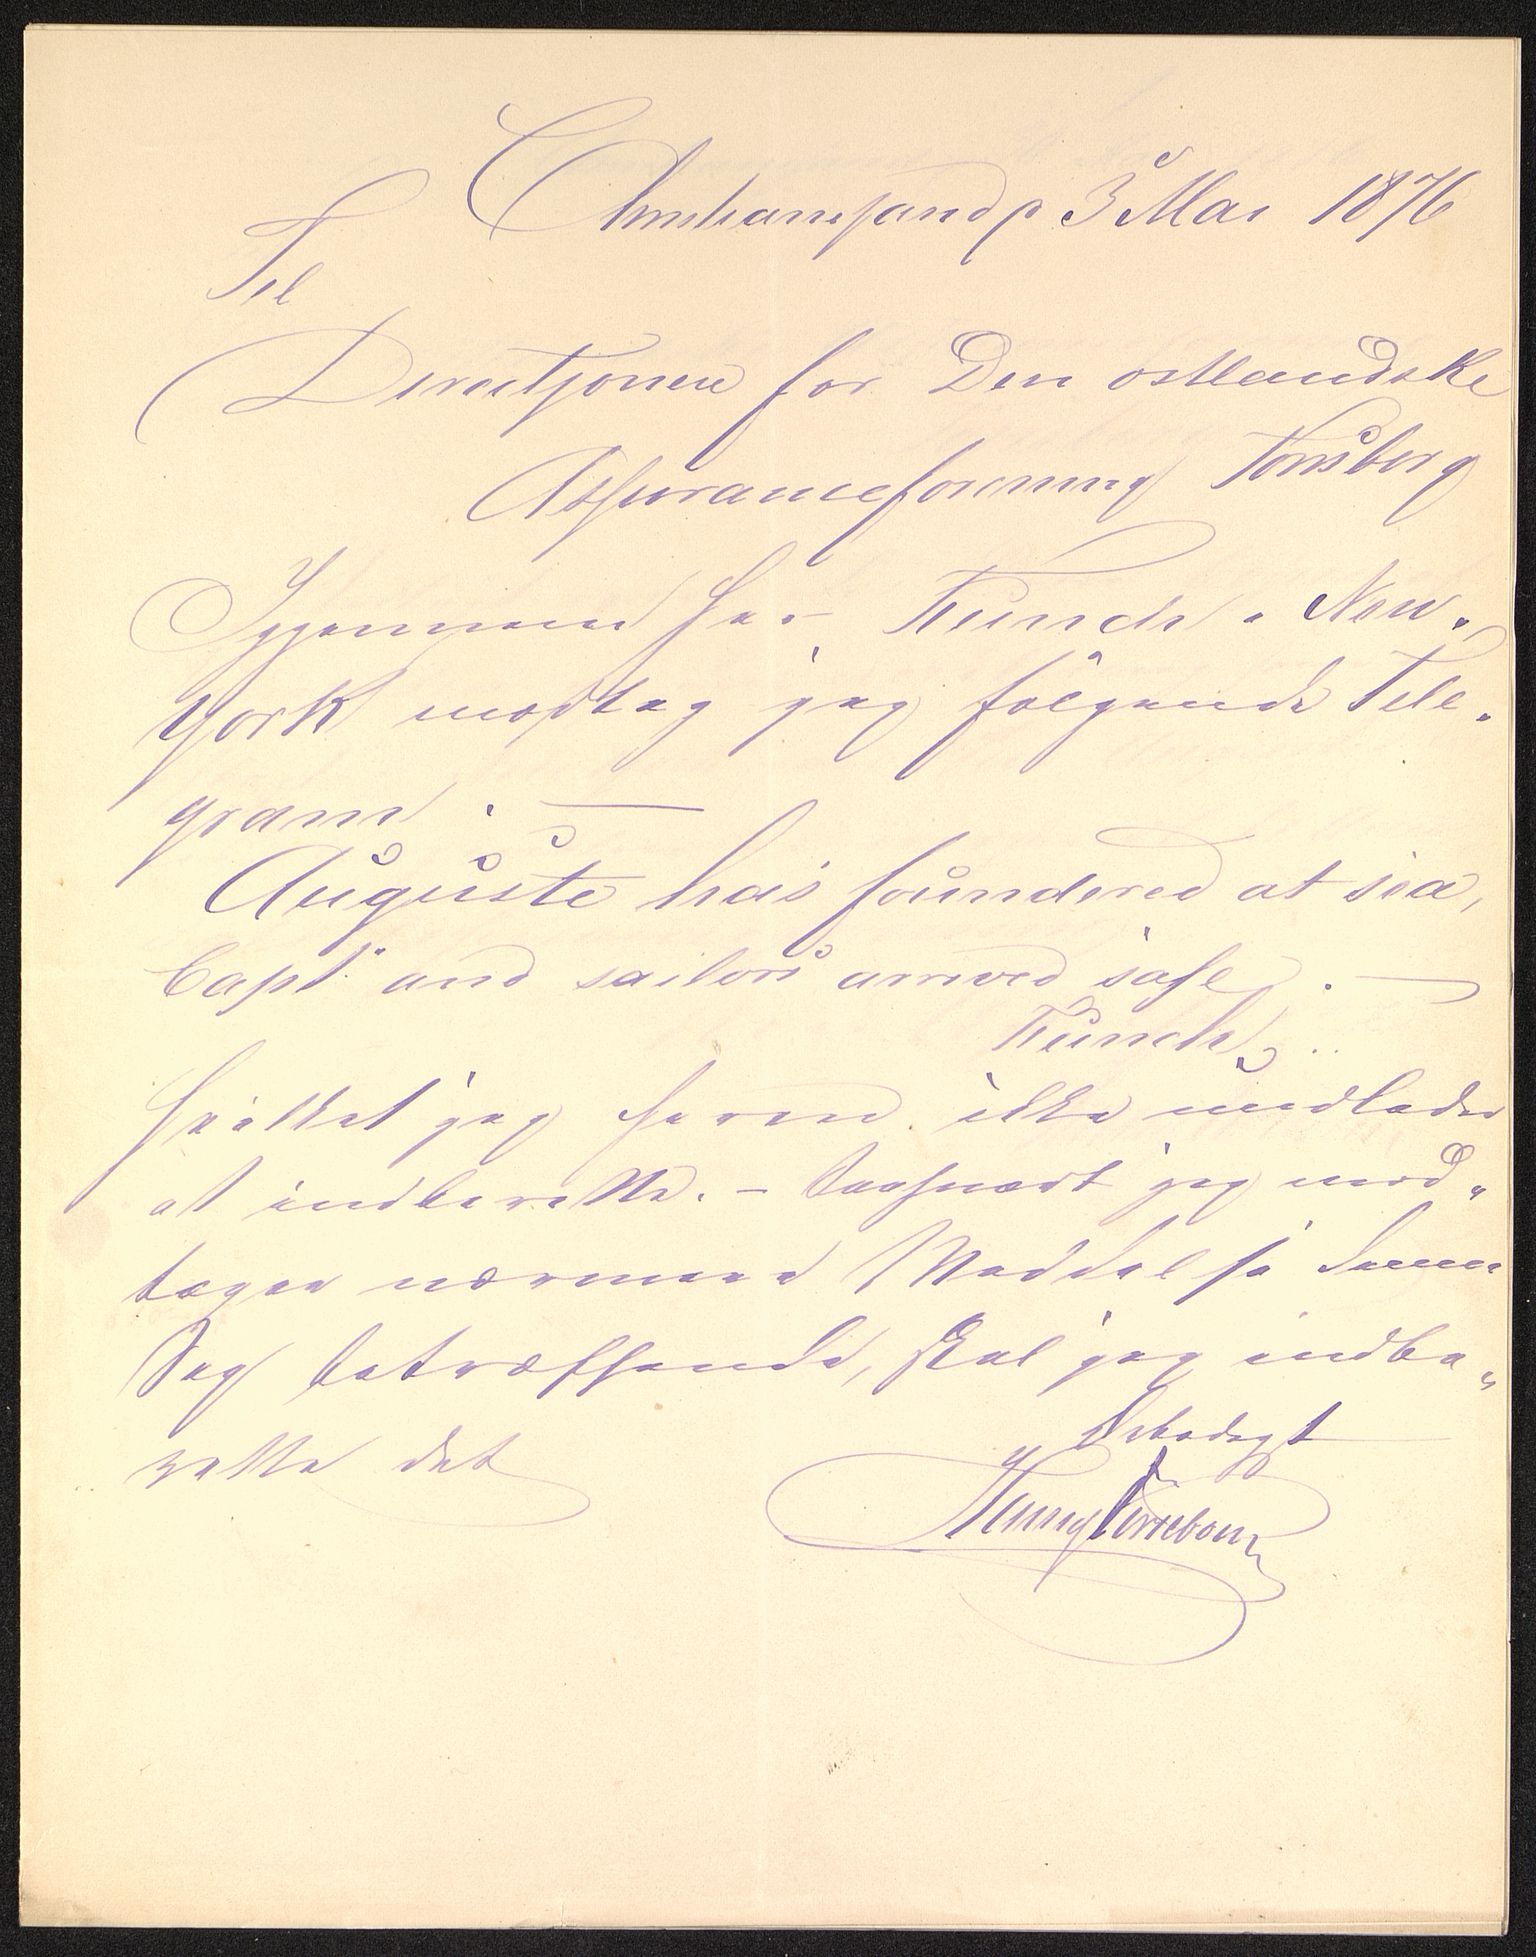 Christiansand p 3 Mai 1876
Til
Directjonen for Den ostlandske
Assuranceforening Tønsberg
Igjennem Hrr Funch. New-
york modtog jeg følgende Tele-
gram. —
Auguste has foundered at sea,
Capt and sailors arrived safe. —
Funch
hvilket jeg herved ikke undlader
at indberette. – Saasnart jeg mod-
tager nærmere Meddelse denne
Sag betræffende, skal jeg indbe-
rette det
Ærbødigst